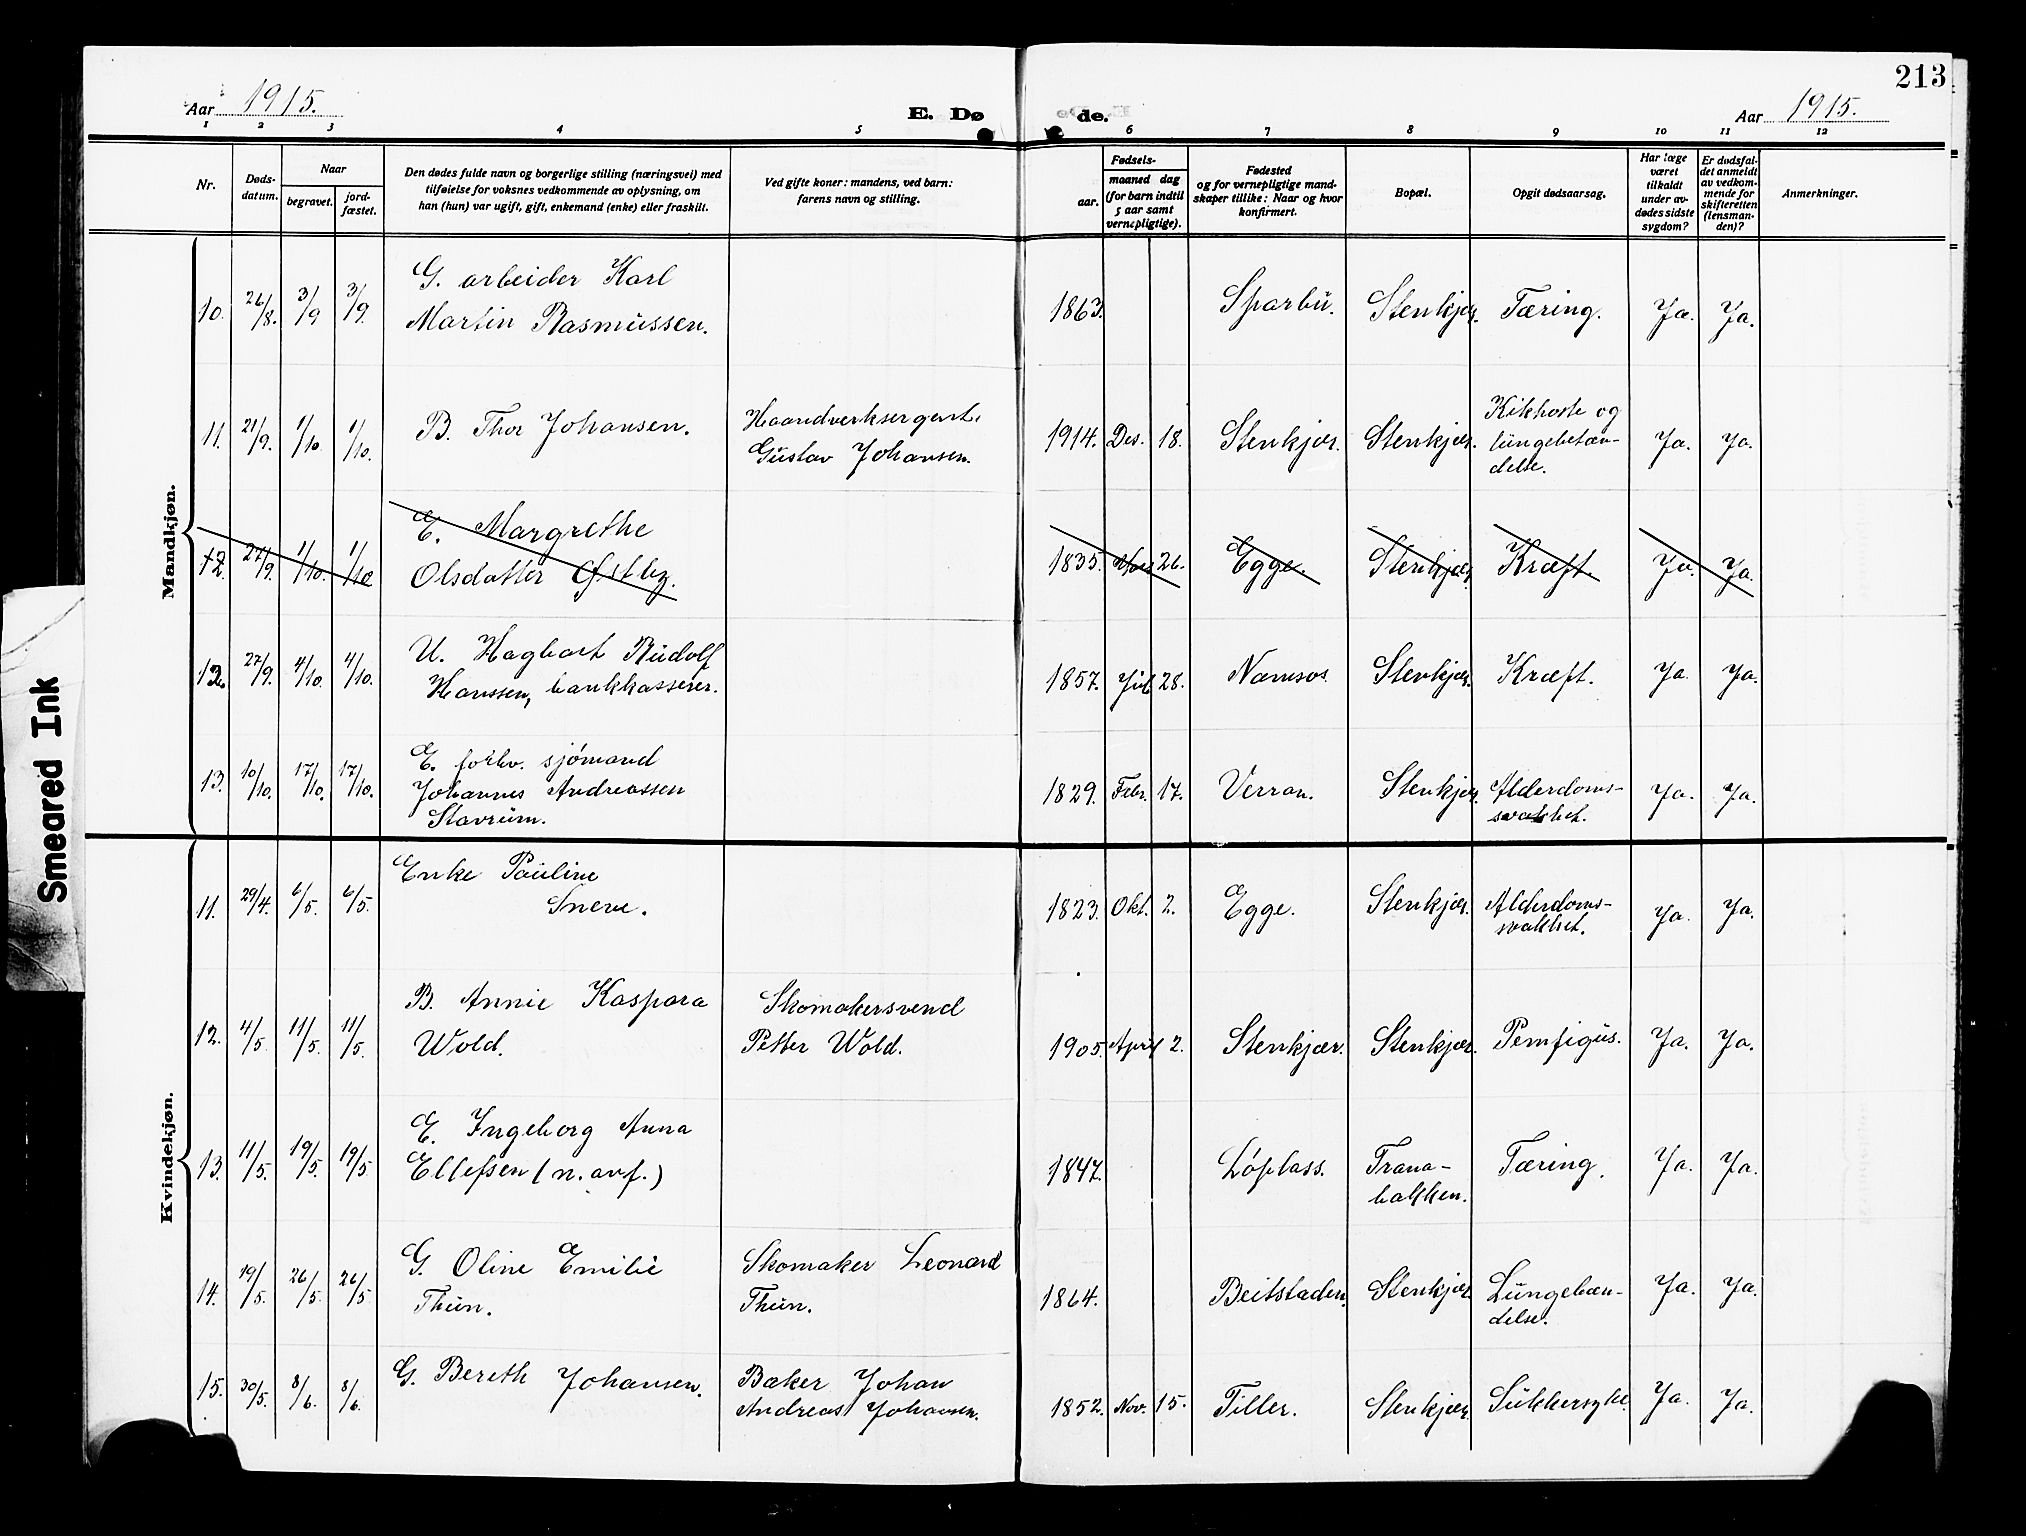 213
Aar 1915.
E. Dø
de.
Aar 1915.
1 2 3 4 5 6 7 8 9 10 11 12
Nr.
Døds-
datum.
Naar
begravet.
jord-
fæstet.
Den dødes fulde navn og borgerlige stilling (næringsvei) med
tilføielse for voksnes vedkommende av oplysning, om
han (hun) var ugift, gift, enkemand (enke) eller fraskilt.
Ved gifte koner: mandens, ved barn:
farens navn og stilling.
Fødsels-
aar.
maaned dag
(for barn indtil
5 aar samt
vernepligtige).
Fødested
og for vernepligtige mand-
skaper tillike: Naar og hvor
konfirmert.
Bopæl.
Opgit dødsaarsag.
Har læge
været
tilkaldt
under av-
dødes sidste
sygdom?
Er dødsfal-
det anmeldt
av vedkom-
mende for
skifteretten
(lensman-
den)?
Anmerkninger.
Mandkjøn.
10. 26/8. 3/9 3/9. G. arbeider Karl
Martin Rasmussen. 1863. Sparbu. Stenkjær. Tæring. Ja. Ja.
11. 21/9. 1/10. 1/10. B. Thor Johansen. Haandverksersgent.
Gustav Johansen. 1914. Des. 18. Stenkjær. Stenkjær. Kikhoste og
lungebetæn-
delse. Ja. Ja.
12. 27/9. 1/10. 1/10 E. Margrethe
Olsdatter Østby. 1835. 26. Egge. Stenkjær. Kræft. Ja. Ja.
12. 27/9. 4/10. 4/10. U. Hagbart Rudolf
Hanssen, bankkasserer. 1857. Jul 28. Namsos. Stenkjær. Kræft. Ja. Ja.
13. 10/10. 17/10. 17/10. E. forhv. sjómand
Johannes Andreassen
Stavrum. 1829. Febr. 17. Verran. Stenkjær. Alderdoms-
svakhet. Ja. Ja.
Kvindekjøn.
11. 29/4. 6/5. 6/5. Enke Pauline
Sneve. 1823. Okt. 2. Egge. Stenkjær. Alderdoms-
svakhet. Ja. Ja.
12. 4/5. 11/5. 11/5. B. Annie Kaspara
Wold. Skomakersvend
Petter Wold. 1905. April 2. Stenkjær. Stenkjær. Pemfigus. Ja. Ja.
13. 11/5. 19/5. 19/5 E. Ingeborg Anna
Ellefsen (n. avf.) 1847. Løplass. Trana-
bakken. Tæring. Ja. Ja.
14. 19/5. 26/5. 26/5 G. Oline Emilie
Thun. Skomaker Leonard
Thun. 1864. Beitstaden. Stenkjær Lungebæn-
delse. Ja. Ja.
15. 30/5. 8/6. 8/6. G. Bereth Johansen. Baker Johan
Andreas Johansen. 1852. Nov. 15. Tiller. Stenkjær. Sukkersyke. Ja. Ja.
Smeared Ink